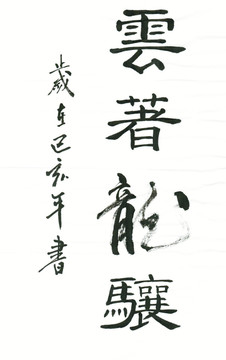 雲著龍驤
歲在己亥年書